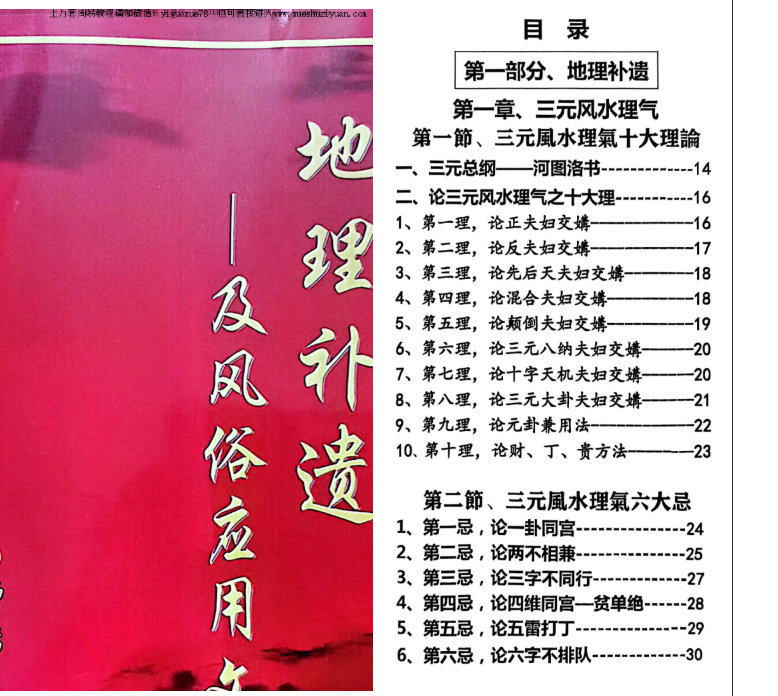 上万套周易教程请加微信：yiguoxue78 也可直接进入www.xueshuziyuan.com
地理补遗
——及风俗应用文
目 录
第一部分、地理补遗
第一章、三元风水理气
第一節、三元風水理氣十大理論
一、三元总纲——河图洛书-------------14
二、论三元风水理气之十大理-----------16
1、第一理，论正夫妇交媾——————16
2、第二理，论反夫妇交媾——————17
3、第三理，论先后天夫妇交媾————18
4、第四理，论混合夫妇交媾—————18
5、第五理，论颠倒夫妇交媾—————19
6、第六理，论三元八纳夫妇交媾———20
7、第七理，论十字天机夫妇交媾———20
8、第八理，论三元大卦夫妇交媾———21
9、第九理，论元卦兼用法——————22
10、第十理，论财、丁、贵方法————23
第二節、三元風水理氣六大忌
1、第一忌，论一卦同宫---------------24
2、第二忌，论两不相兼---------------25
3、第三忌，论三字不同行-------------27
4、第四忌，论四维同宫—贫单绝------28
5、第五忌，论五雷打丁---------------29
6、第六忌，论六字不排队-------------30